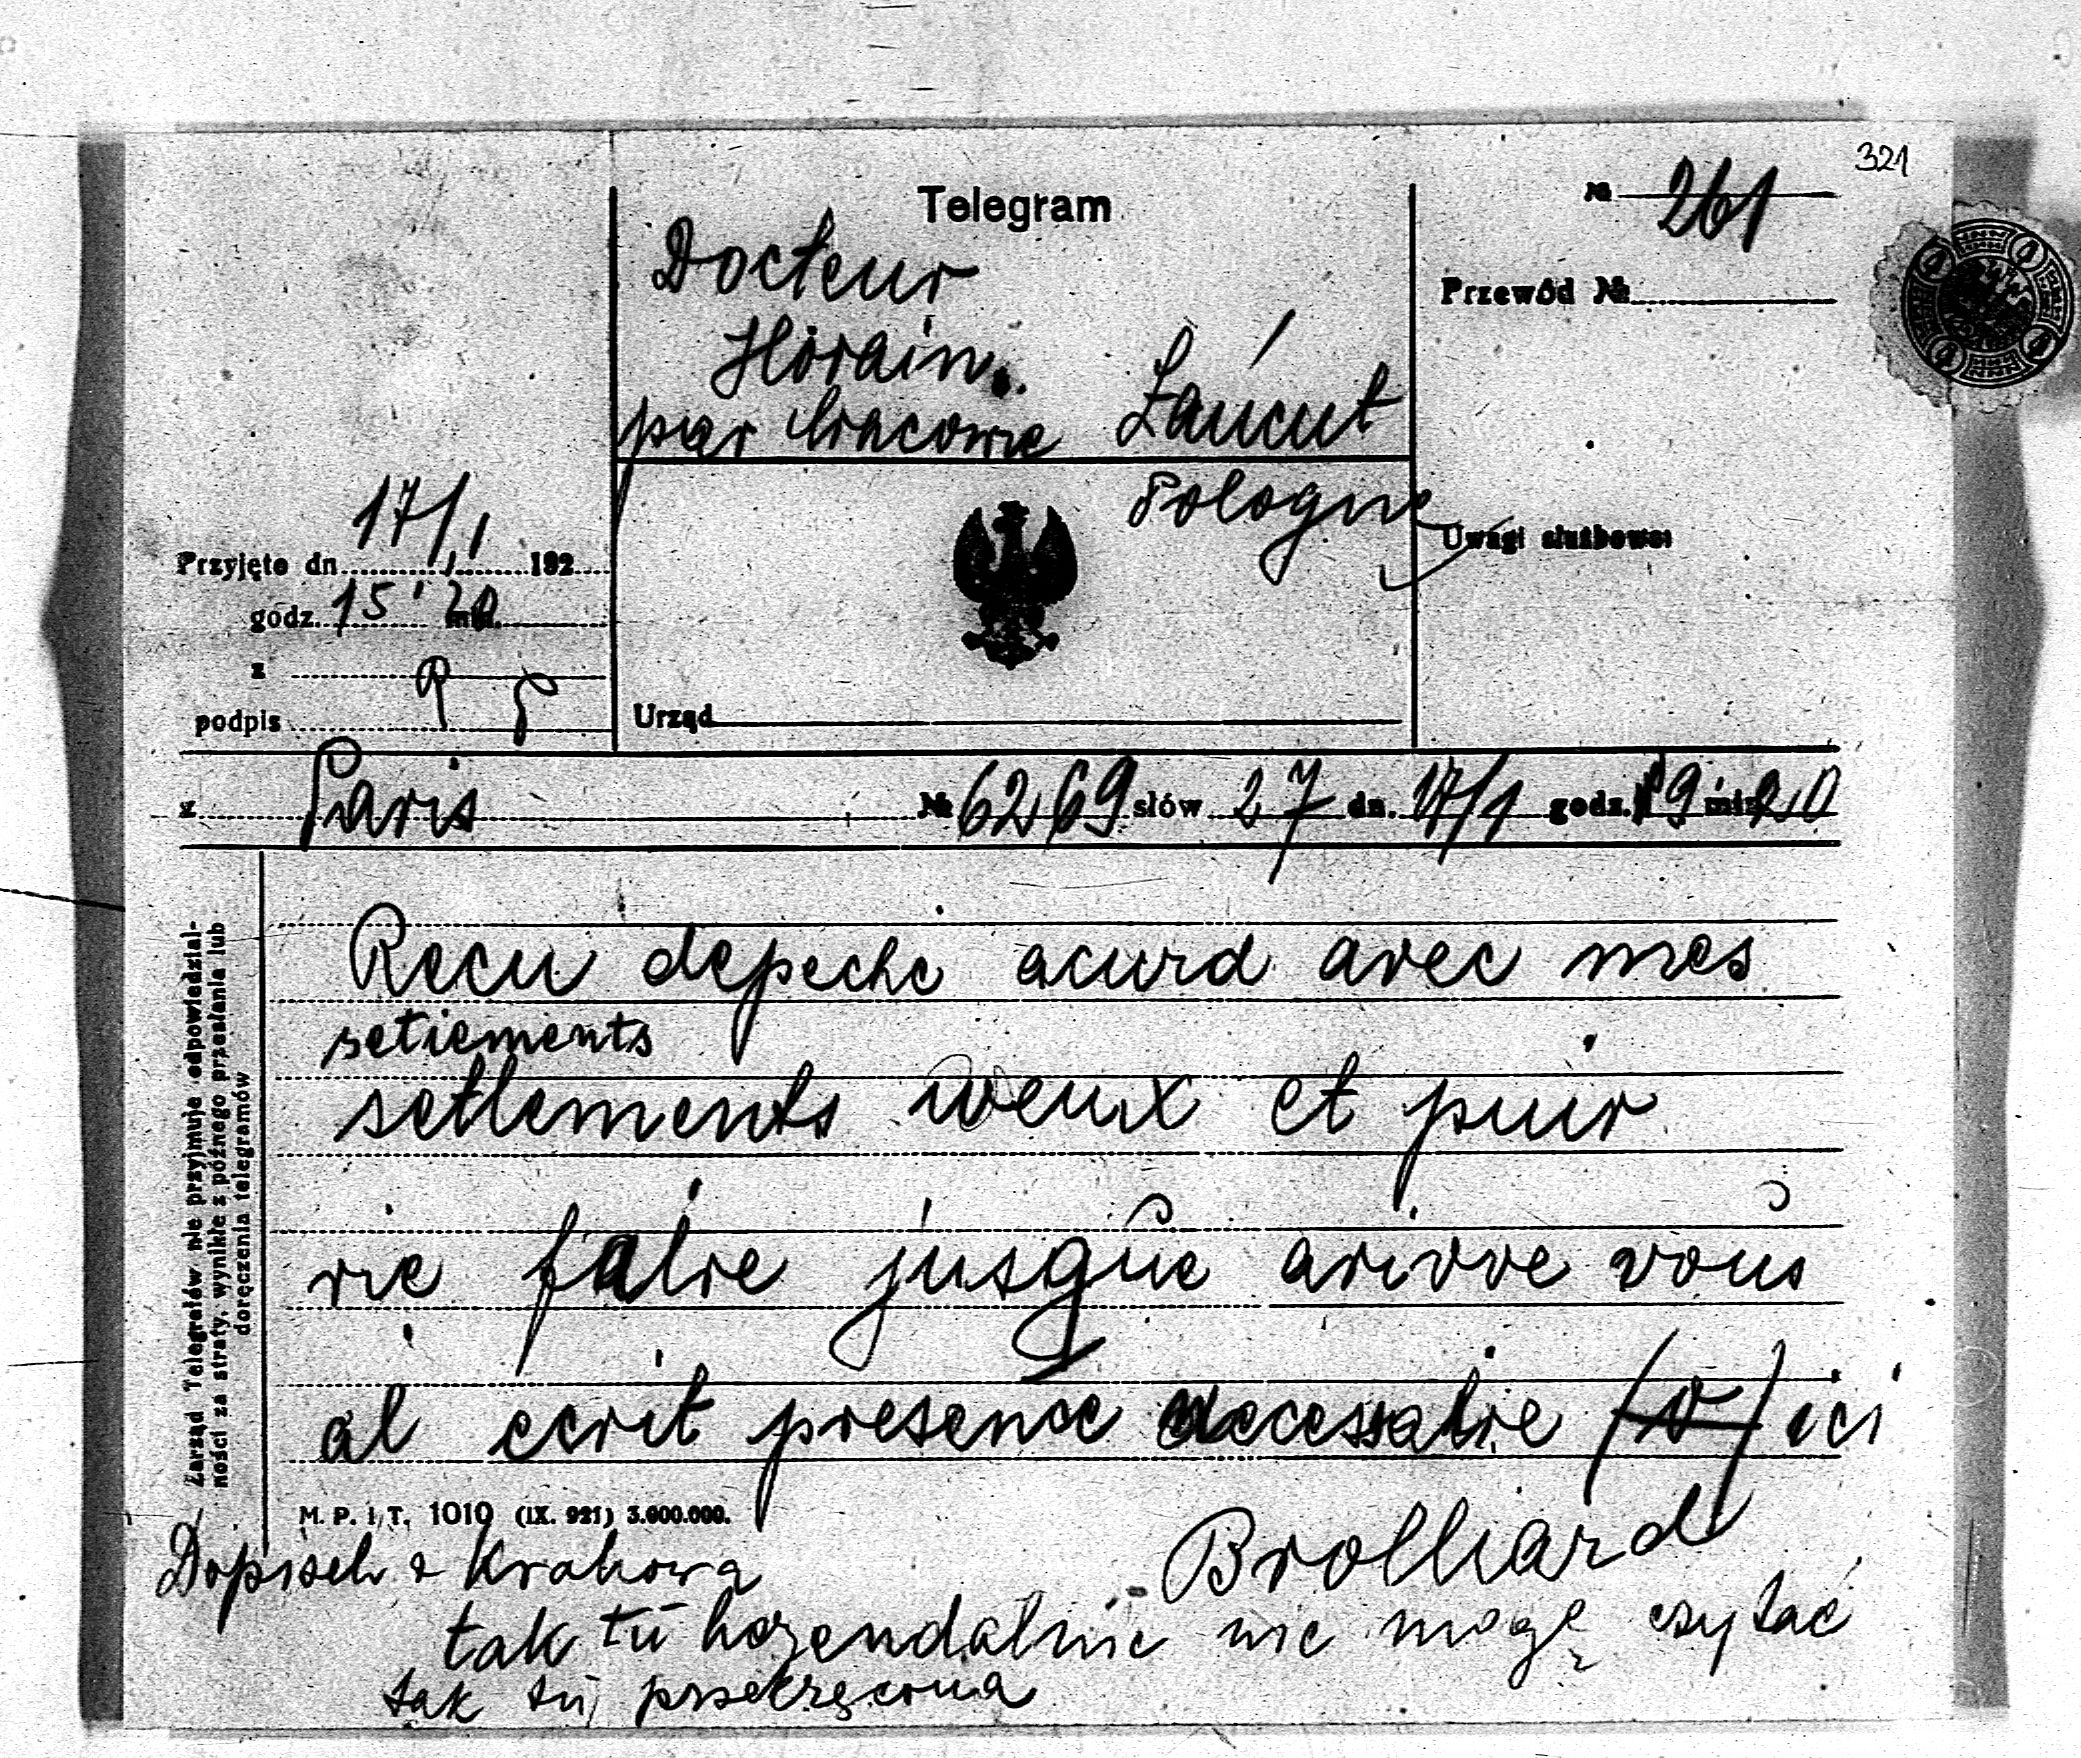 321
Telegram
№ 261
Docteur
Horain.
par Cracovie Łańcut
Pologne
Przewód №
Uwagi służbowe:
17/1
Przyjęto dn. 192
godz. 15' 20 m.
z
podpis
Urząd
z Paris № 6269 słów 27 dn. 17/1 godz. 19 min 20
Recu depeche acurd avec mes
setiements
setlements weux et puir
rie falre jusque arivve vous
al ecrit presence necessalre (v) ici
Brolliard
Zarząd Telegrafów nie przyjmuje odpowiedzial-
ności za straty, wynikłe z późnego przesłania lub
doręczenia telegramów
M. P. i T. 1010 (IX. 921) 3.000.000.
Dopisek z Krakowa
tak tu skandalnie nie mogę czytać
tak tu przekręcona